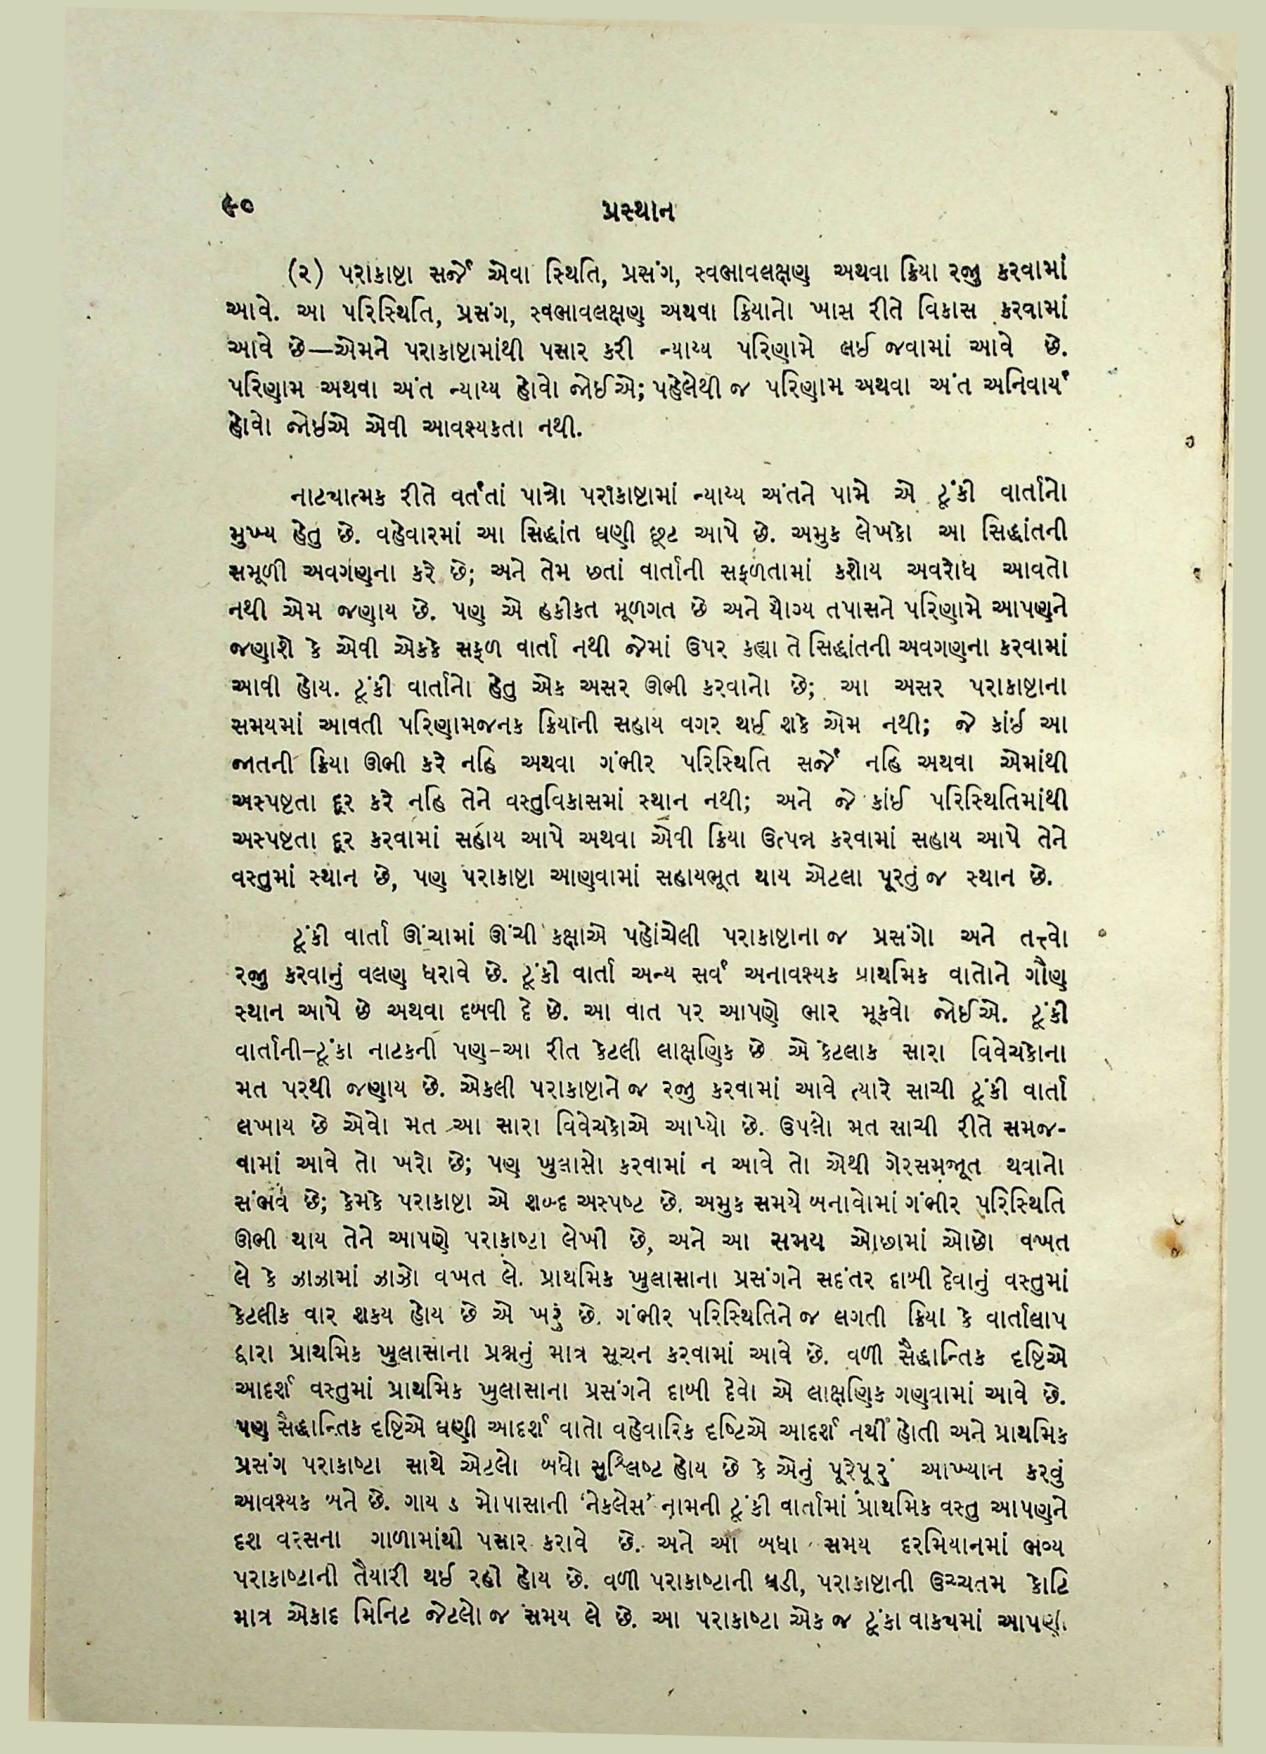 ૯૦
પ્રસ્થાન
(૨) પરાકાષ્ટા સર્જે એવા સ્થિતિ, પ્રસંગ, સ્વભાવલક્ષણ અથવા ક્રિયા રજુ કરવામાં
આવે. આ પરિસ્થિતિ, પ્રસંગ, સ્વભાવલક્ષણ અથવા ક્રિયાનો ખાસ રીતે વિકાસ કરવામાં
આવે છે—એમને પરાકાષ્ટામાંથી પસાર કરી ન્યાય્ય પરિણામે લઈ જવામાં આવે છે.
પરિણામ અથવા અંત ન્યાય્ય હોવો જોઈએ; પહેલેથી જ પરિણામ અથવા અંત અનિવાર્ય
હોવો જોઈએ એવી આવશ્યકતા નથી.
નાટ્યાત્મક રીતે વર્તતાં પાત્રો પરાકાષ્ટામાં ન્યાય્ય અંતને પામે એ ટૂંકી વાર્તાનો
મુખ્ય હેતુ છે. વહેવારમાં આ સિદ્ધાંત ઘણી છૂટ આપે છે. અમુક લેખકો આ સિદ્ધાંતની
સમૂળી અવગણના કરે છે; અને તેમ છતાં વાર્તાની સફળતામાં કશોય અવરોધ આવતો
નથી એમ જણાય છે. પણ એ હકીકત મૂળગત છે અને યોગ્ય તપાસને પરિણામે આપણને
જણાશે કે એવી એકકે સફળ વાર્તા નથી જેમાં ઉપર કહ્યા તે સિદ્ધાંતની અવગણના કરવામાં
આવી હોય. ટૂંકી વાર્તાનો હેતુ એક અસર ઊભી કરવાનો છે; આ અસર પરાકાષ્ટાના
સમયમાં આવતી પરિણામજનક ક્રિયાની સહાય વગર થઈ શકે એમ નથી; જે કાંઈ આ
જાતની ક્રિયા ઊભી કરે નહિ અથવા ગંભીર પરિસ્થિતિ સર્જે નહિ અથવા એમાંથી
અસ્પષ્ટતા દૂર કરે નહિ તેને વસ્તુવિકાસમાં સ્થાન નથી; અને જે કાંઈ પરિસ્થિતિમાંથી
અસ્પષ્ટતા દૂર કરવામાં સહાય આપે અથવા એવી ક્રિયા ઉત્પન્ન કરવામાં સહાય આપે તેને
વસ્તુમાં સ્થાન છે, પણ પરાકાષ્ટા આણવામાં સહાયભૂત થાય એટલા પૂરતું જ સ્થાન છે.
ટૂંકી વાર્તા ઊંચામાં ઊંચી કક્ષાએ પહોંચેલી પરાકાષ્ટાના જ પ્રસંગો અને તત્ત્વો
રજુ કરવાનું વલણ ધરાવે છે. ટૂંકી વાર્તા અન્ય સર્વ અનાવશ્યક પ્રાથમિક વાતોને ગૌણ
સ્થાન આપે છે અથવા દબવી દે છે. આ વાત પર આપણે ભાર મૂકવો જોઈએ. ટૂંકી
વાર્તાની–ટૂંકા નાટકની પણ–આ રીત કેટલી લાક્ષણિક છે એ કેટલાક સારા વિવેચકોના
મત પરથી જણાય છે. એકલી પરાકાષ્ટાને જ રજુ કરવામાં આવે ત્યારે સાચી ટૂંકી વાર્તા
લખાય છે એવો મત આ સારા વિવેચકોએ આપ્યો છે. ઉપલો મત સાચી રીતે સમજ-
વામાં આવે તો ખરો છે; પણ ખુલાસો કરવામાં ન આવે તો એથી ગેરસમજૂત થવાનો
સંભવ છે; કેમકે પરાકાષ્ટા એ શબ્દ અસ્પષ્ટ છે. અમુક સમયે બનાવોમાં ગંભીર પરિસ્થિતિ
ઊભી થાય તેને આપણે પરાકાષ્ટા લેખી છે, અને આ સમય ઓછામાં ઓછો વખત
લે કે ઝાઝામાં ઝાઝો વખત લે. પ્રાથમિક ખુલાસાના પ્રસંગને સદંતર દાબી દેવાનું વસ્તુમાં
કેટલીક વાર શક્ય હોય છે એ ખરું છે. ગંભીર પરિસ્થિતિને જ લગતી ક્રિયા કે વાર્તાલાપ
દ્વારા પ્રાથમિક ખુલાસાના પ્રશ્નનું માત્ર સૂચન કરવામાં આવે છે. વળી સૈદ્ધાન્તિક દૃષ્ટિએ
આદર્શ વસ્તુમાં પ્રાથમિક ખુલાસાના પ્રસંગને દાબી દેવો એ લાક્ષણિક ગણવામાં આવે છે.
પણ સૈદ્ધાન્તિક દૃષ્ટિએ ઘણી આદર્શ વાતો વહેવારિક દૃષ્ટિએ આદર્શ નથી હોતી અને પ્રાથમિક
પ્રસંગ પરાકાષ્ટા સાથે એટલો બધો સુશ્લિષ્ટ હોય છે કે એનું પૂરેપૂરું આખ્યાન કરવું
આવશ્યક બને છે. ગાય ડ મોપાસાની ‘નેકલેસ’ નામની ટૂંકી વાર્તામાં પ્રાથમિક વસ્તુ આપણને
દશ વરસના ગાળામાંથી પસાર કરાવે છે. અને આ બધા સમય દરમિયાનમાં ભવ્ય
પરાકાષ્ટાની તૈયારી થઈ રહી હોય છે. વળી પરાકાષ્ટાની ઘડી, પરાકાષ્ટાની ઉચ્ચતમ કોટિ
માત્ર એકાદ મિનિટ જેટલો જ સમય લે છે. આ પરાકાષ્ટા એક જ ટૂંકા વાક્યમાં આપણી